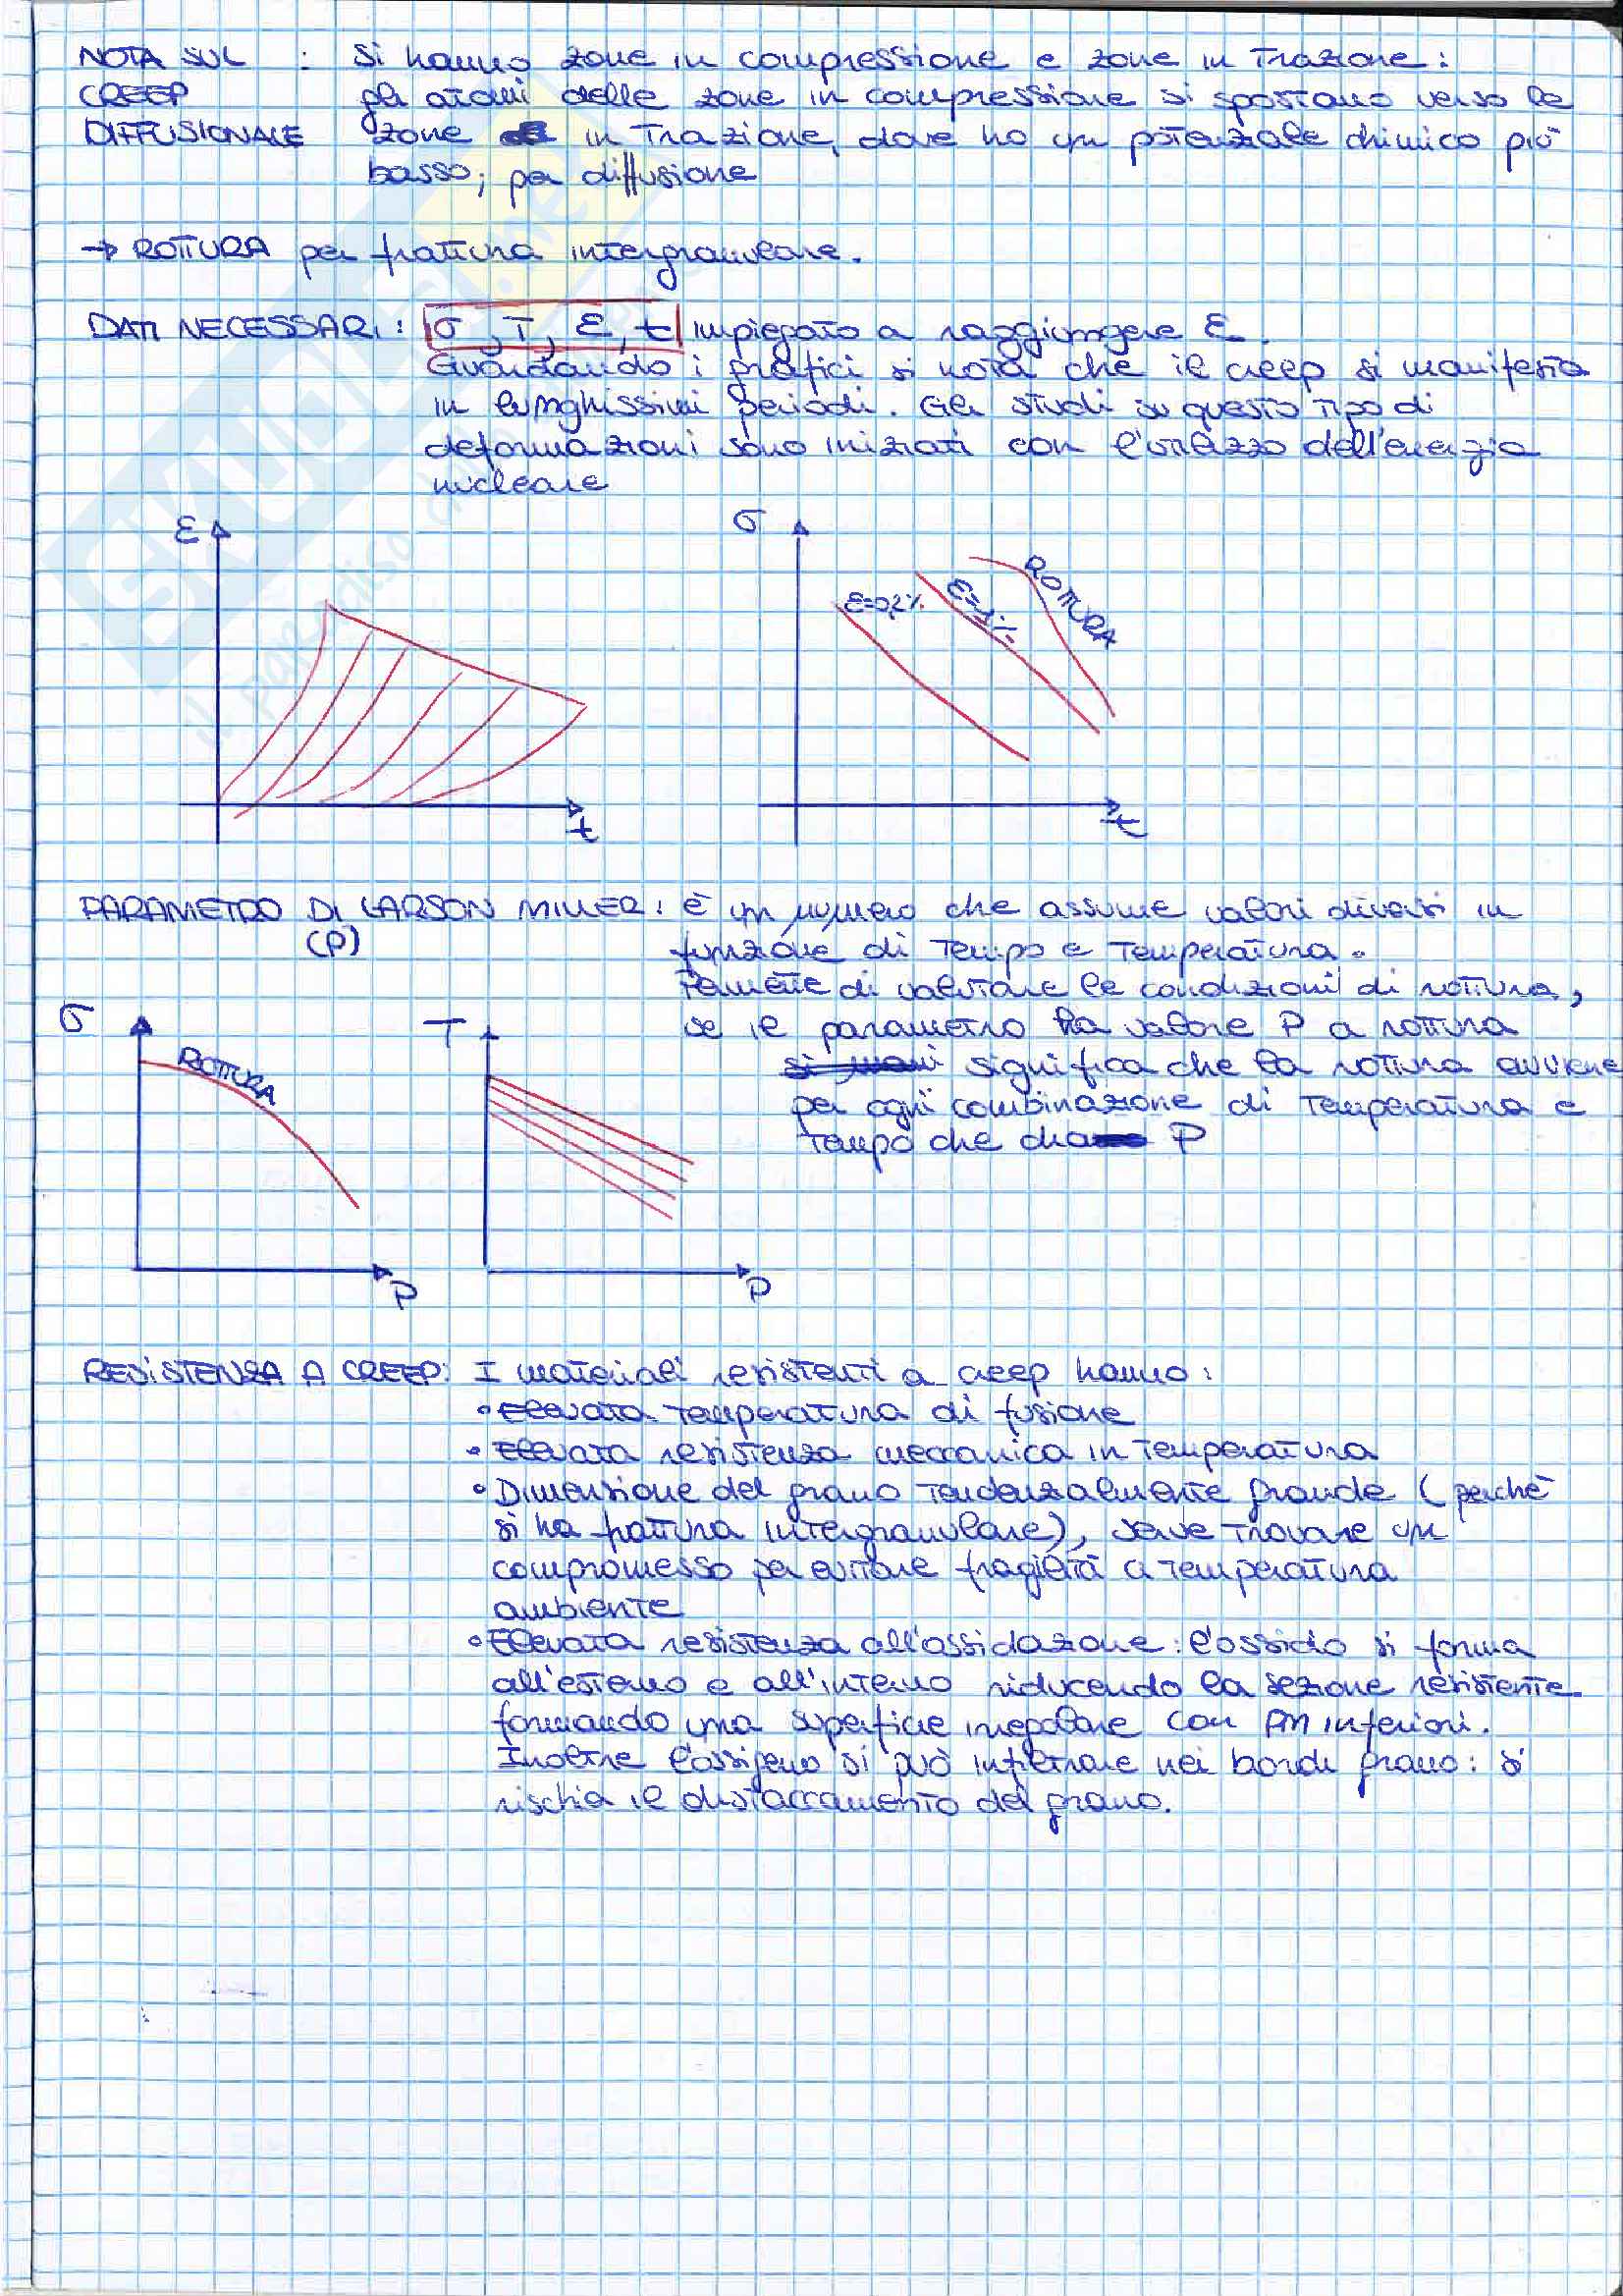 NOTA SUL : Si hanno zone in compressione e zone in Trazione :
CREEP gli atomi delle zone in compressione si spostano verso le
DIFFUSIONALE zone in Trazione, dove ho un potenziale chimico più
basso, per diffusione
→ ROTTURA per frattura intergranulare.
DATI NECESSARI : σ, T, ε, t impiegato a raggiungere ε.
Guardando i grafici si nota che il creep si manifesta
in lunghissimi periodi. Gli studi su questo tipo di
deformazioni sono iniziati con l'utilizzo dell'energia
nucleare
ε
σ
ε=0,2%
ε=1%
ROTTURA
t
t
PARAMETRO DI LARSON MILLER : è un numero che assume valori diversi in
(P) funzione di Tempo e Temperatura.
Permette di valutare le condizioni di rottura,
σ
T
se il parametro ha valore P a rottura
ROTTURA
significa che la rottura avviene
per ogni combinazione di Temperatura e
Tempo che dia P
P
P
RESISTENZA A CREEP: I materiali resistenti a creep hanno :
• Elevata Temperatura di fusione
• Elevata resistenza meccanica in Temperatura
• Dimensione del grano Tendenzialmente grande (perchè
si ha frattura intergranulare), serve trovare un
compromesso per evitare fragilità a temperatura
ambiente
• Elevata resistenza all'ossidazione : l'ossido si forma
all'esterno e all'interno riducendo la sezione resistente
formando una superficie irregolare con PM inferiori.
Inoltre l'ossigeno si può infiltrare nei bordi grano : si
rischia il distaccamento del grano.
SKUOLA.net
il paradiso